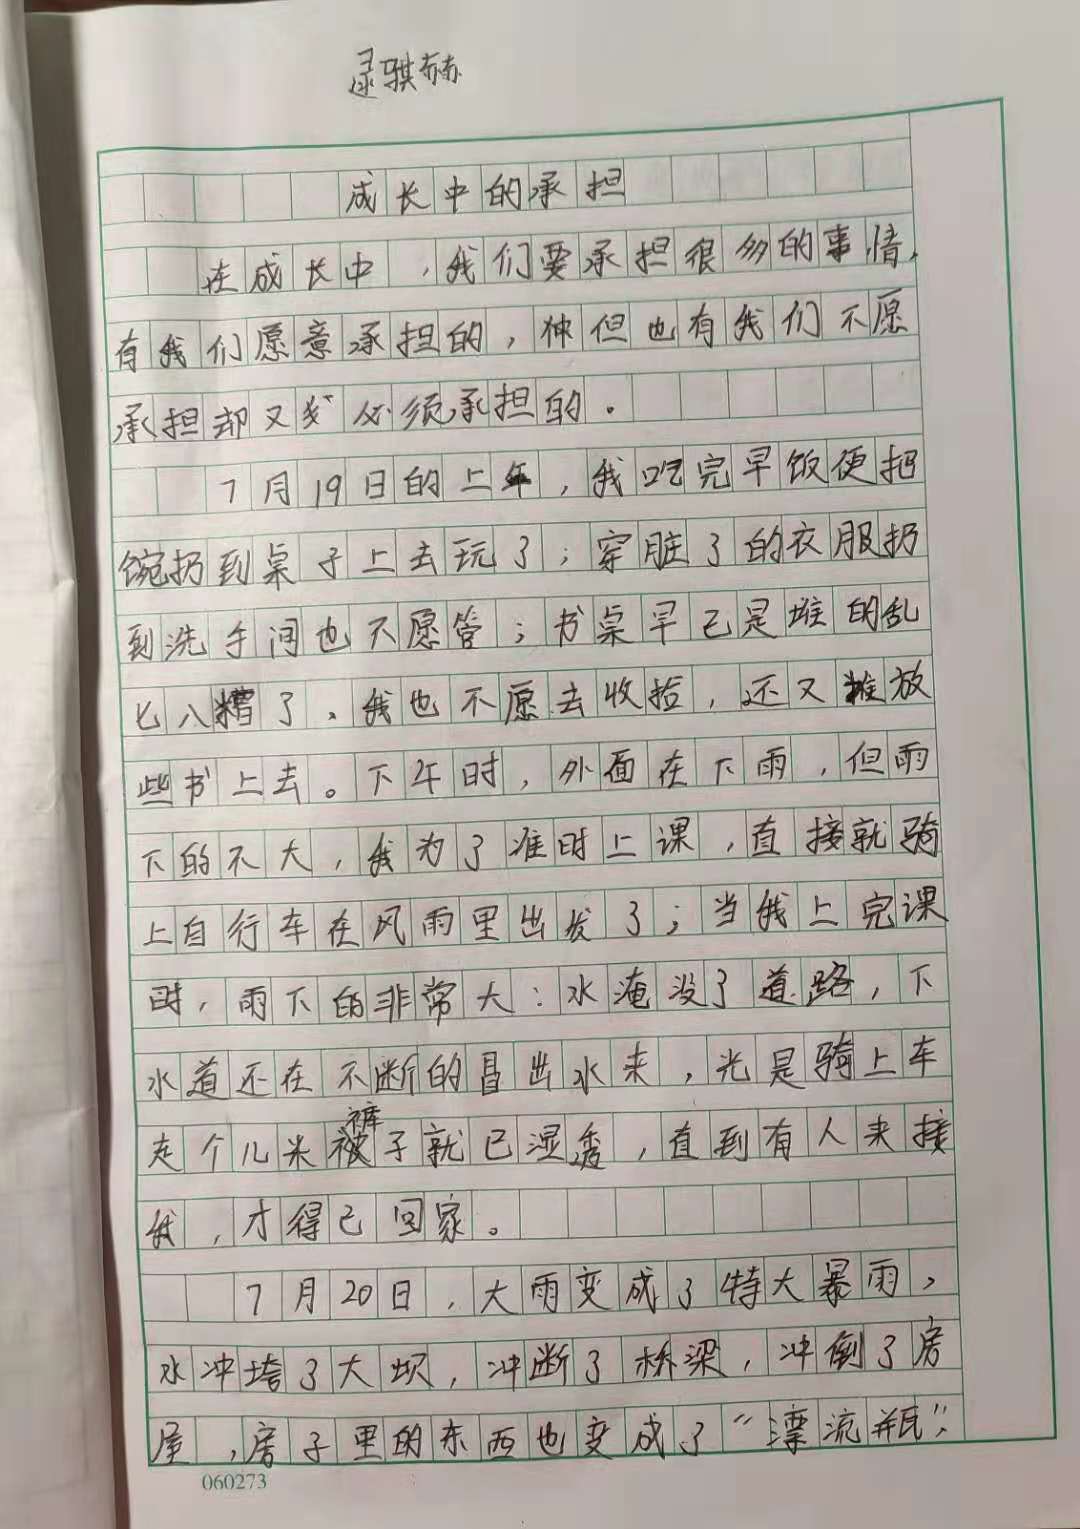 逯骐赫
成长中的承担
在成长中，我们要承担很多的事情，
有我们愿意承担的，但也有我们不愿
承担却又必须承担的。
7月19日的上午，我吃完早饭便把
碗扔到桌子上去玩了；穿脏了的衣服扔
到洗手间也不愿管；书桌早已是堆的乱
七八糟了。我也不愿去收拾，还又堆放
些书上去。下午时，外面在下雨，但雨
下的不大，我为了准时上课，直接就骑
上自行车在风雨里出发了；当我上完课
时，雨下的非常大：水淹没了道路，下
水道还在不断的冒出水来，光是骑上车
走个几米裤子就已湿透，直到有人来接
我，才得已回家。
7月20日，大雨变成了特大暴雨，
水冲垮了大坝，冲断了桥梁，冲倒了房
屋，房子里的东西也变成了“漂流瓶”，
060273